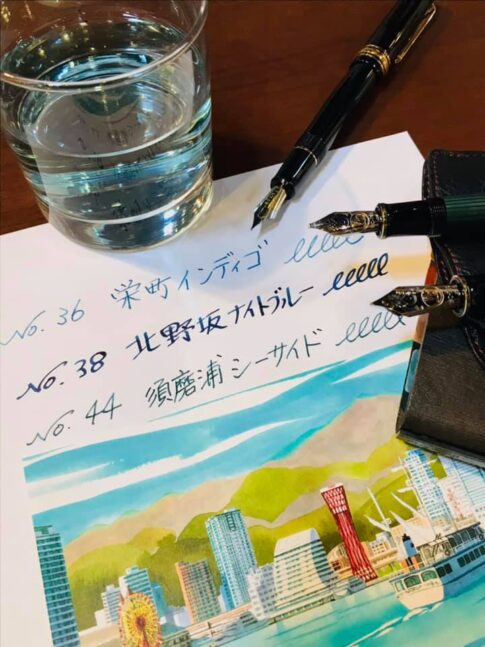 No. 36 栄町インディゴ
No. 38 北野坂ナイトブルー
No. 44 須磨浦シーサイド